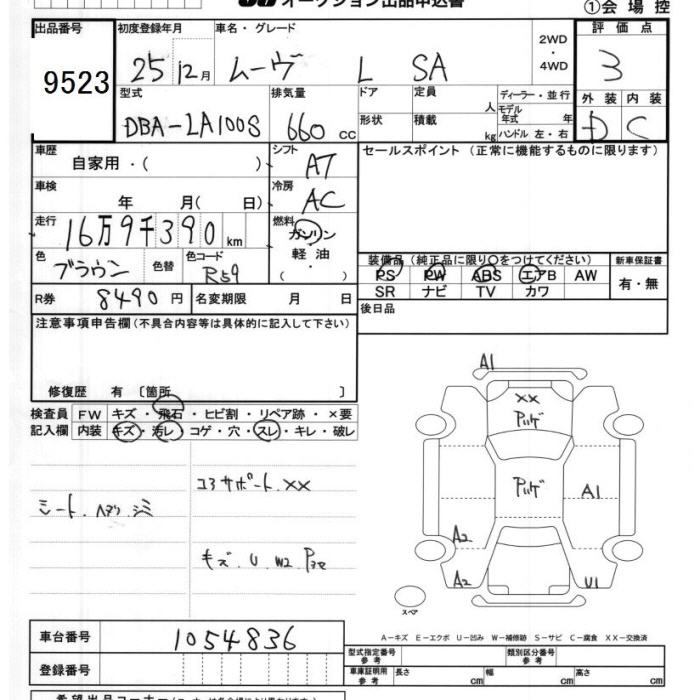 オークション出品申込書
①会場控
出品番号 初度登録年月 車名・グレード 2WD・4WD 評価点
9523 25 12月 ムーヴ L SA 3
型式 排気量 ドア 定員 人 ディーラー・並行 外装 内装
DBA-LA100S 660 cc 形状 積載 kg モデル年式 年 ハンドル 左・右 D C
車歴 自家用・( ) シフト AT セールスポイント (正常に機能するものに限ります)
車検 年 月( 日) 冷房 AC
走行 16万9千390 km 燃料 ガソリン・軽油・( )
色 ブラウン 色替 色コード R59
装備品(純正品に限り○をつけてください) 新車保証書
PS PW ABS エアB AW 有・無
SR ナビ TV カワ
R券 8490円 名変期限 月 日 後日品
注意事項申告欄(不具合内容等は具体的に記入して下さい)
修復歴 有〔箇所 〕
検査員 FW キズ・飛石・ヒビ割・リペア跡・×要
記入欄 内装 キズ・汚レ・コゲ・穴・スレ・キレ・破レ
コアサポート××
シート.ヘタリ.シミ
キズ.U W2
A1
××
A1
A2
A2
U1
スペア
車台番号 1054836
A-キズ E-エクボ U-凹み W-補修跡 S-サビ C-腐食 XX-交換済
登録番号
型式指定番号 参考 類別区分番号 参考
車庫証明用 参考 長さ cm 幅 cm 高さ cm
希望出品コーナー